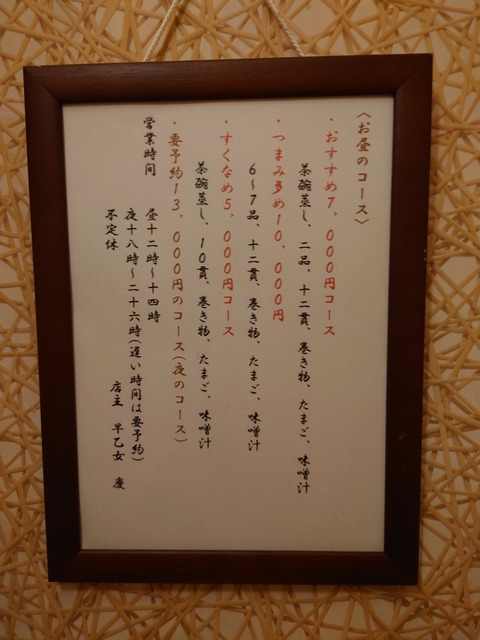 〈お昼のコース〉
・おすすめ7，000円コース
茶碗蒸し、二品、十二貫、巻き物、たまご、味噌汁
・つまみ多め10，000円
6～7品、十二貫、巻き物、たまご、味噌汁
・すくなめ5，000円コース
茶碗蒸し、10貫、巻き物、たまご、味噌汁
・要予約13，000円のコース(夜のコース)
営業時間
昼十二時～十四時
夜十八時～二十六時(遅い時間は要予約)
不定休
店主 早乙女 慶